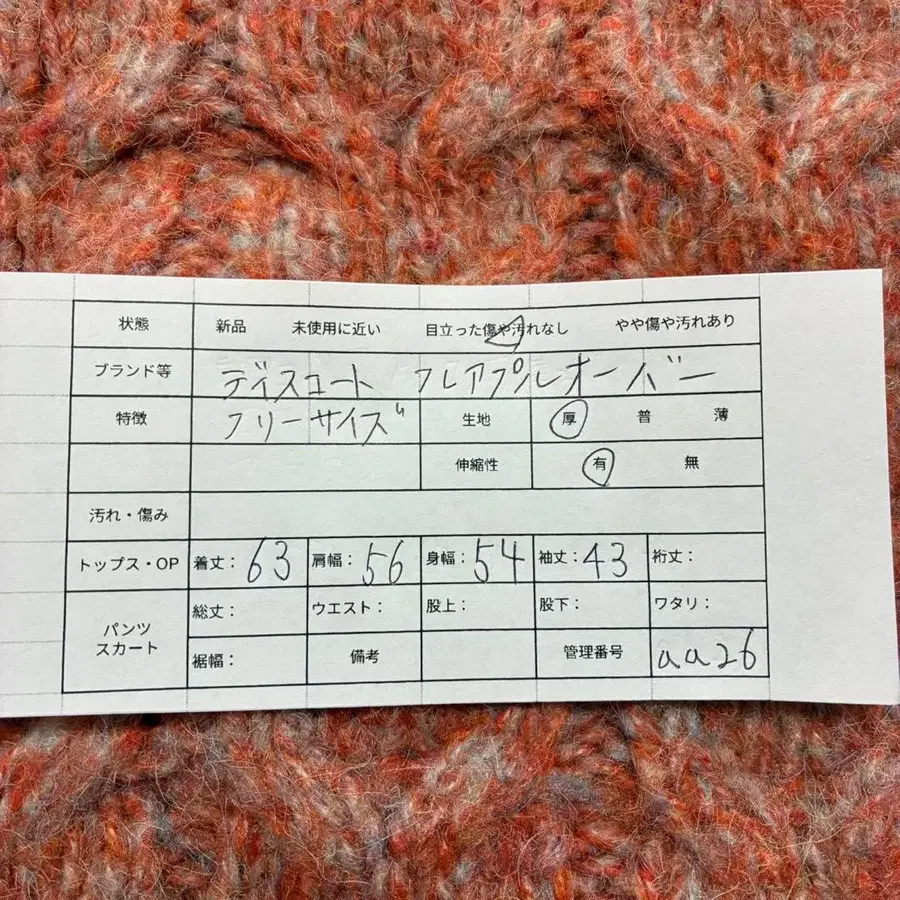 状態 新品 未使用に近い 目立った傷や汚れなし やや傷や汚れあり
ブランド等 ディスコート フレアプルオーバー
特徴 フリーサイズ 生地 厚 普 薄
伸縮性 有 無
汚れ・傷み
トップス・OP 着丈: 63 肩幅: 56 身幅: 54 袖丈: 43 裄丈:
パンツ スカート 総丈: ウエスト: 股上: 股下: ワタリ:
裾幅: 備考 管理番号 aa26